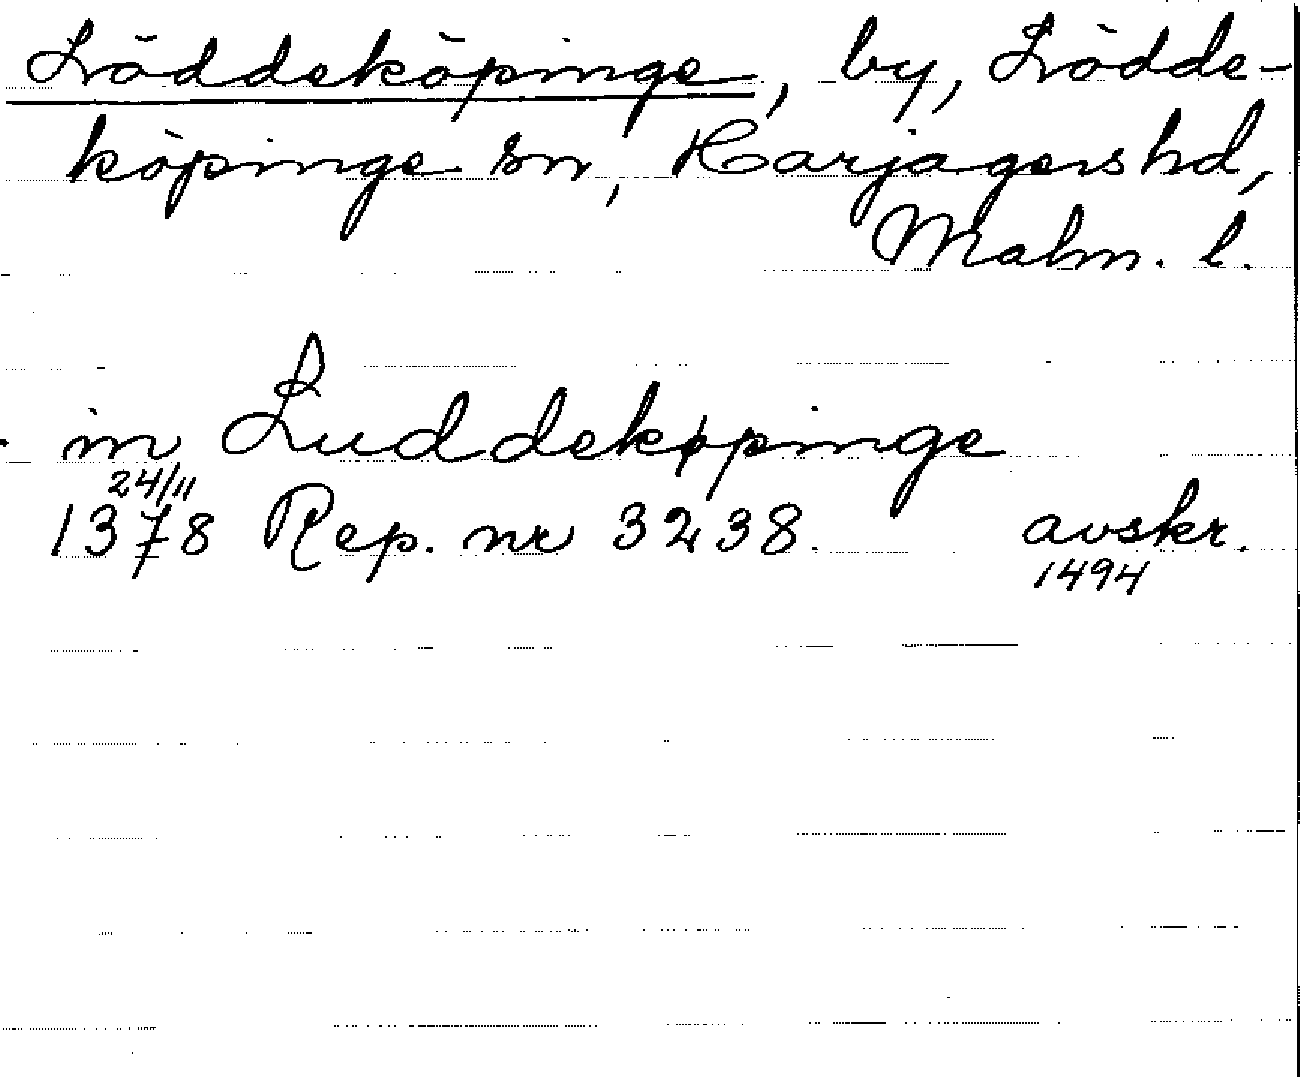 Löddeköpinge, by, Lödde-
köpinge sn, Harjagers hd,
Malm. l.
in Luddekøpinge
24/11
1378 Rep. nr 3238. avskr.
1494